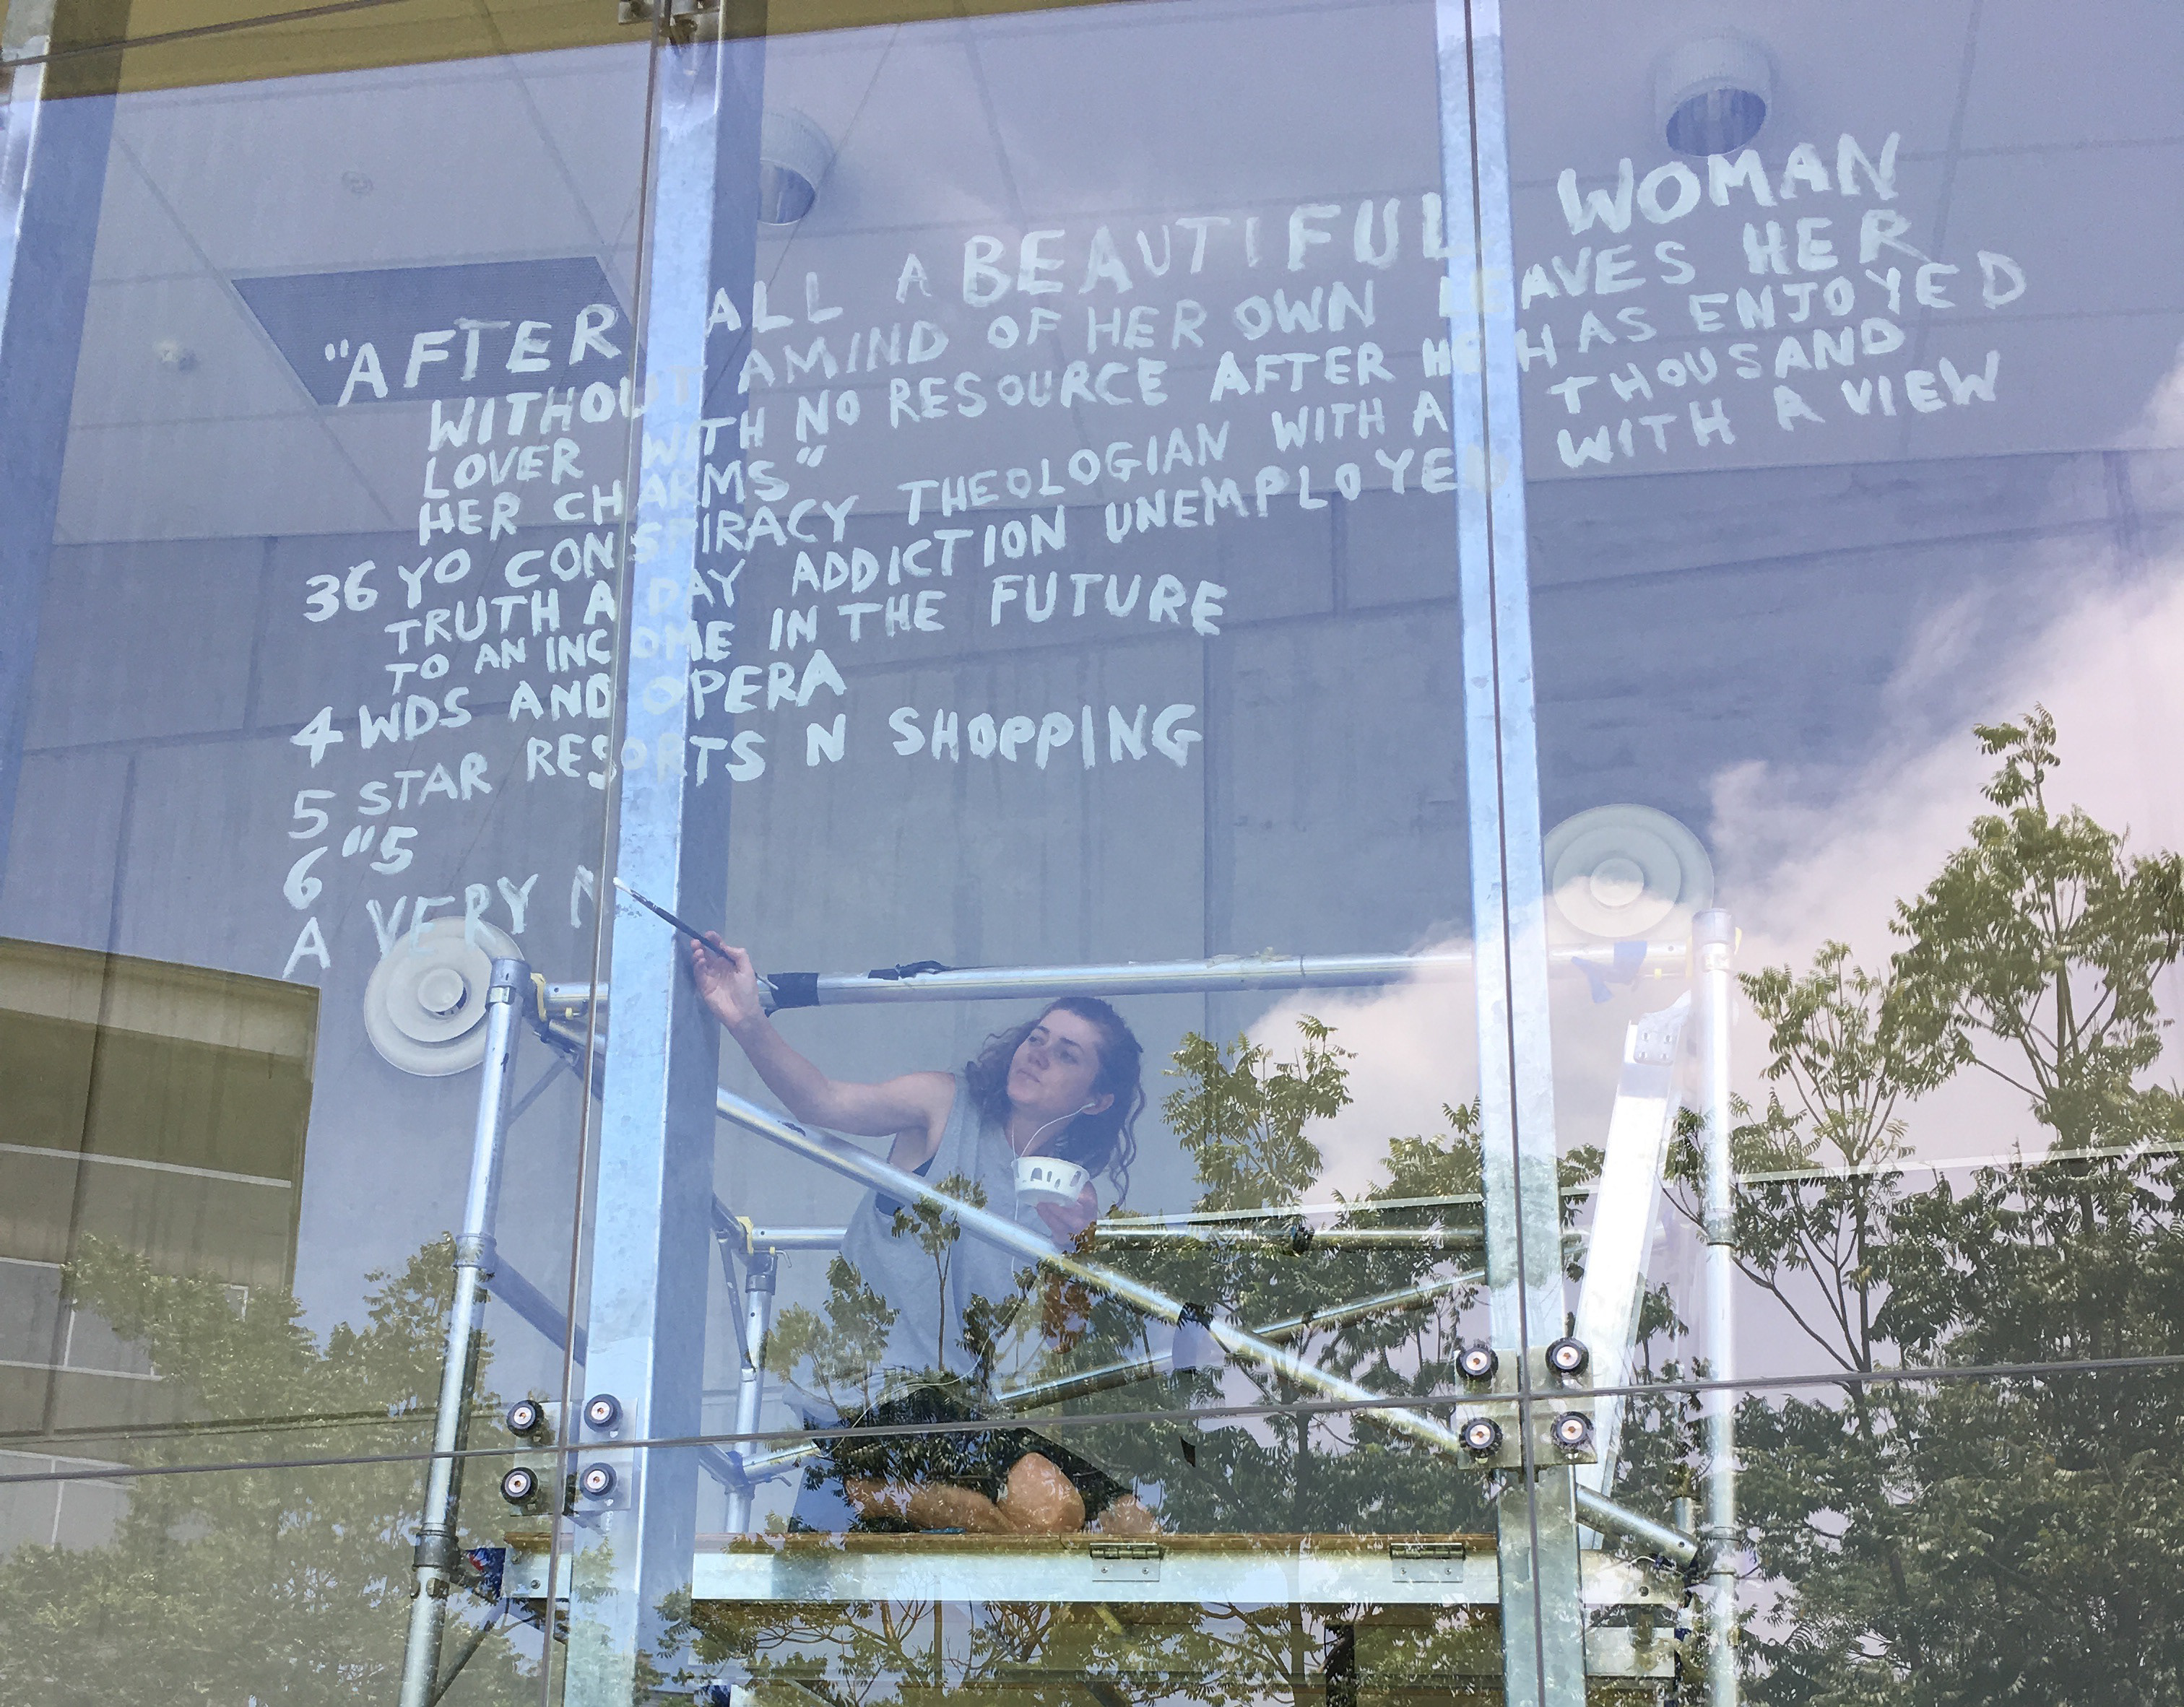 "AFTER ALL A BEAUTIFUL WOMAN
WITHOUT AMIND OF HER OWN LEAVES HER
LOVER WITH NO RESOURCE AFTER HE HAS ENJOYED
HER CHARMS"
36 YO CONSPIRACY THEOLOGIAN WITH A THOUSAND
TRUTH A DAY ADDICTION UNEMPLOYED WITH A VIEW
TO AN INCOME IN THE FUTURE
4 WDS AND OPERA
5 STAR RESORTS N SHOPPING
6 "5
A VERY N